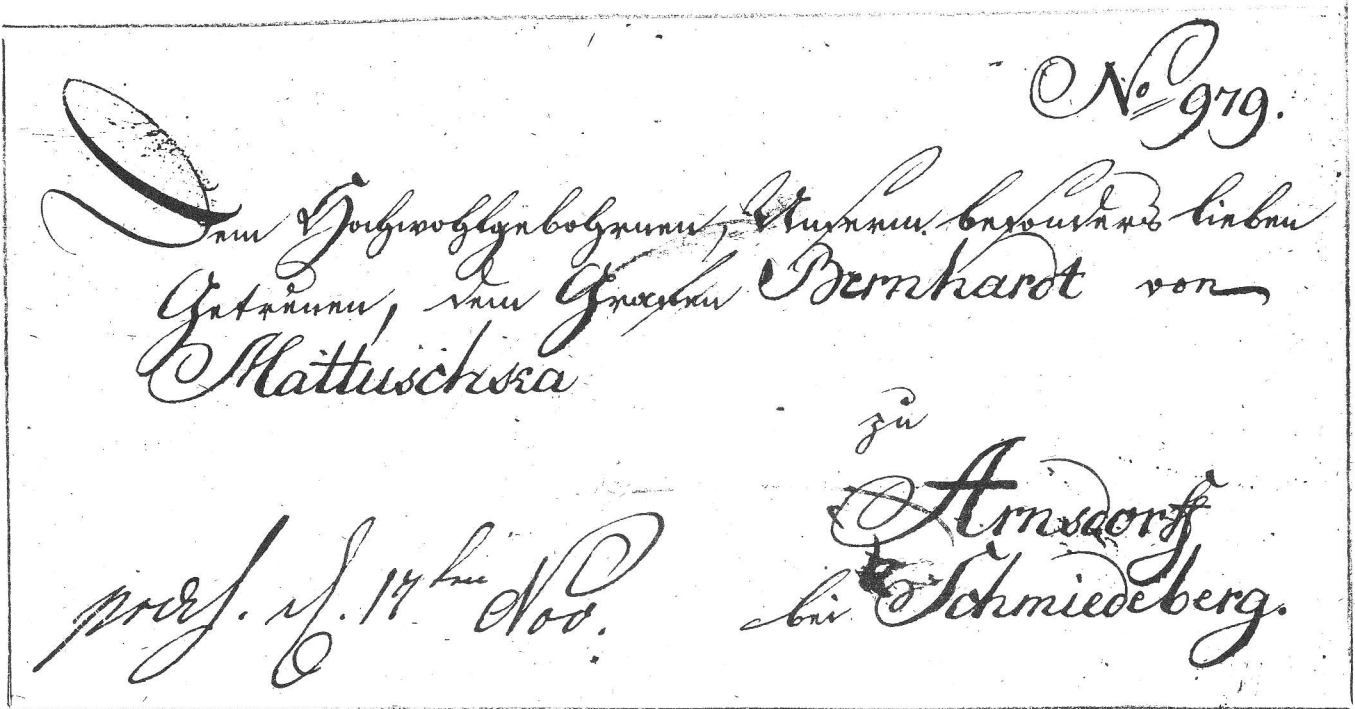 No 979.
Dem Hochwohlgebohrnen, Unserm besonders lieben
Getreuen, dem Grafen Bernhardt von
Mattuschka
zu
Arnsdorff
bei Schmiedeberg.
praes. d. 17ten Nov.